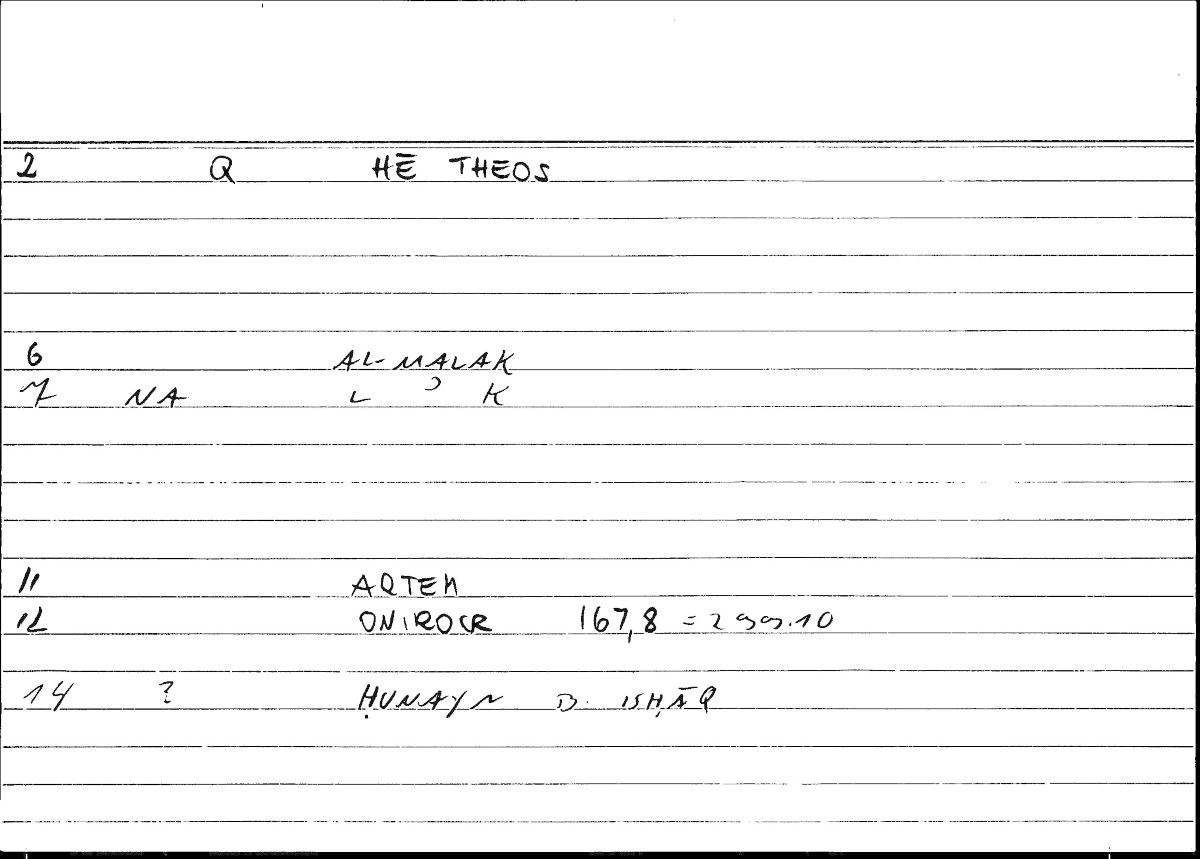 2 Q HĒ THEOS
6 AL-MALAK
7 NA L ʾ K
11 ARTEM
12 ONIROCR 167,8 = 299.10
14 ? ḤUNAYN B. ISḤĀQ